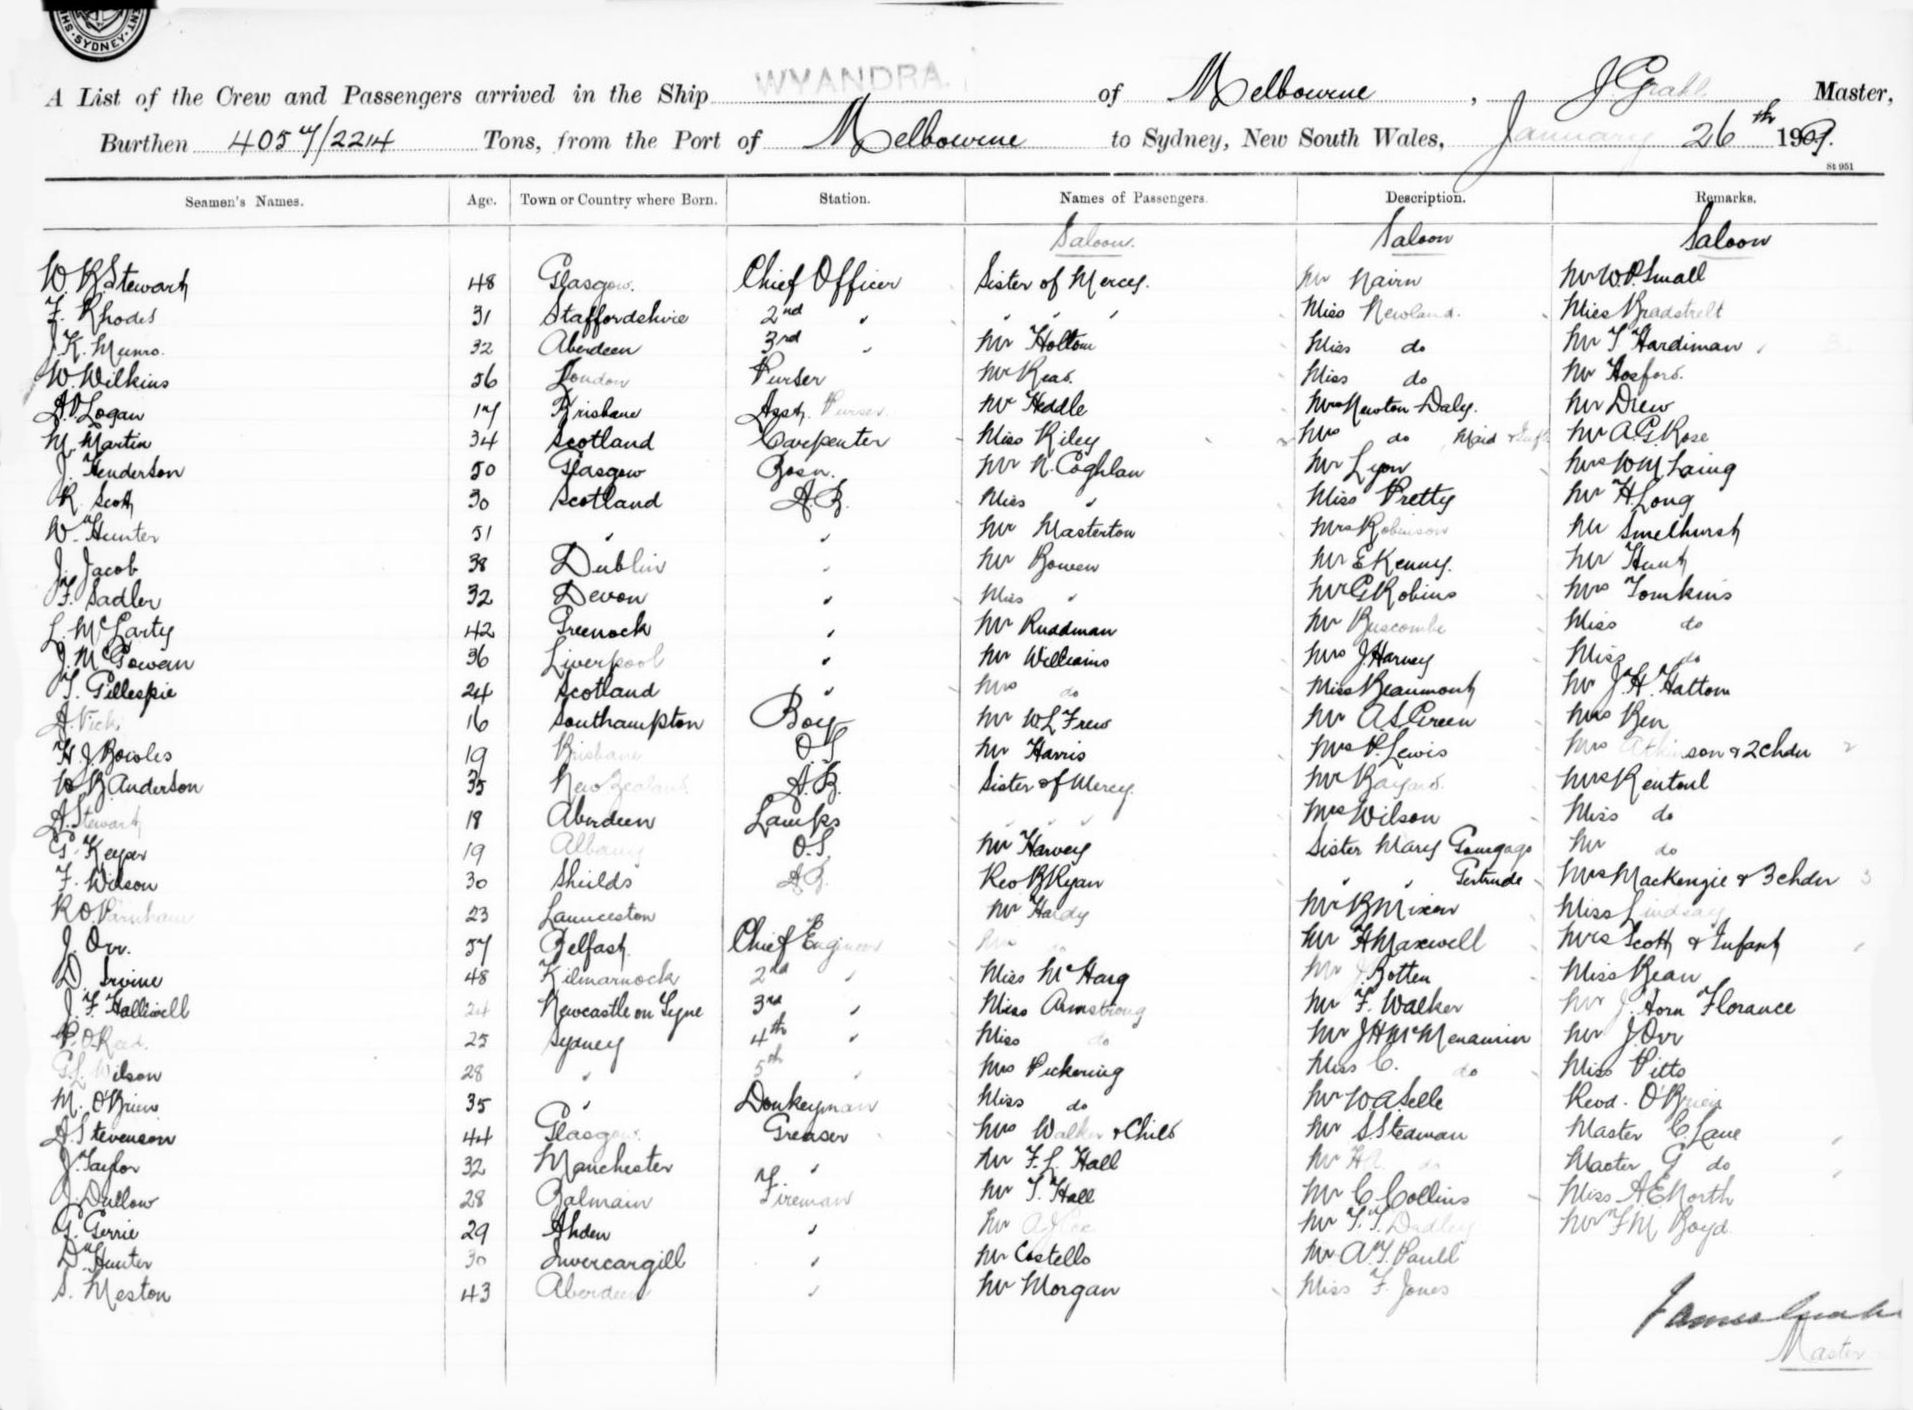 SYDNEY
A List of the Crew and Passengers arrived in the Ship WYANDRA of Melbourne, J. Grahl Master,
Burthen 4057/2214 Tons, from the Port of Melbourne to Sydney, New South Wales, January 26th 1909.
St 951
Seamen's Names. Age. Town or Country where Born. Station. Names of Passengers. Description. Remarks.
Saloon. Saloon Saloon
W. R. Stewart 48 Glasgow. Chief Officer Sister of Mercy. Mr Nairn Mr W.P. Small
F. Rhodes 31 Staffordshire 2nd " " " " Miss Newland. Miss Bradstrett
J. K. Munro. 32 Aberdeen 3rd " Mr Holtom Miss do Mr T Hardiman
W. Wilkins 56 London Purser Mr Reas. Miss do Mr Hosford.
A. P. Logan 17 Brisbane Asst. Purser. Mr Heddle Mrs Newton Daly. Mr Drew
M. Martin 34 Scotland Carpenter Miss Riley Mrs do Maid & Inft Mr A.G. Rose
J. Henderson 50 Glasgow Bosn. Mr N. Coghlan Mr Lyon Mrs W M Laing
R. Scott 30 Scotland A.B. Miss " Miss Pretty Mr H. Long
W. Hunter 51 " " Mr Masterton Mrs Robinson Mr Smelhurst
J. Jacob 38 Dublin " Mr Bowen Mr E Kenny. Mr Hunt
F. Sadler 32 Devon " Miss " Mr G Robins Mrs Tomkins
L. McLarty 42 Greenock " Mr Ruddman Mr Buscombe Miss do
J. McGowan 36 Liverpool " Mr Williams Mrs J. Harvey Miss do
T. Gillespie 24 Scotland " Mrs do Miss Beaumont Mr J. H. Hattom
A. 16 Southampton Boy Mr W L Frew Mr A. S. Green Mrs Ben
H. J. Bowles 19 Brisbane O.S. Mr Harris Mrs P. Lewis Mrs Atkinson & 2 chdn 2
W B. Anderson 35 New Zealand. A.B. Sister of Mercy. Mr Bayard. Mrs Rentoul
A. Stewart 18 Aberdeen Lamps " " " Mrs Wilson Miss do
G. Keyser 19 Albany O.S. Mr Harvey Sister Mary Gonzago Mr do
F. Wilson 30 Shields A.B. Rev B Ryan " " Gertrude Mrs Mackenzie & 3 chdn 3
R. O. Farnham 23 Launceston Mr Hardy Mr B Mixon Miss Lindsay
J. Orr. 57 Belfast. Chief Engineer Mrs do Mr H Maxwell Mrs Scott & Infant
D. Irvine 48 Kilmarnock 2nd " Miss McHarg Mr J. Botten Miss Bean
J. F. Halliwell 24 Newcastle on Tyne 3rd " Miss Armstrong Mr F. Walker Mr J. Horn Florance
P. O. Reed. 25 Sydney 4th " Miss do Mr J H McMenamin Mr J. Orr
G. L. Wilson 28 " 5th " Mrs Pickering Miss C. do Miss Pitts
M. O'Brien 35 " Donkeyman Miss do Mr W. A. Selle Revd. O'Brien
A. Stevenson 44 Glasgow. Greaser Mrs Walker & Child Mr S. Steaman Master C Lane
J. Taylor 32 Manchester " Mr F. L. Hall Mr H do Master G do
J. Dullow 28 Balmain Fireman Mr T. Hall Mr C. Collins Miss A. E North
G. Gerrie 29 Ahden " Mr Mr T. T. Dudley Mr F M Boyd
D. Hunter 30 Invercargill " Mr Costello Mr A. T. Pauld
S. Meston 43 Aberdeen " Mr Morgan Miss F. Jones
James Grahl
Master